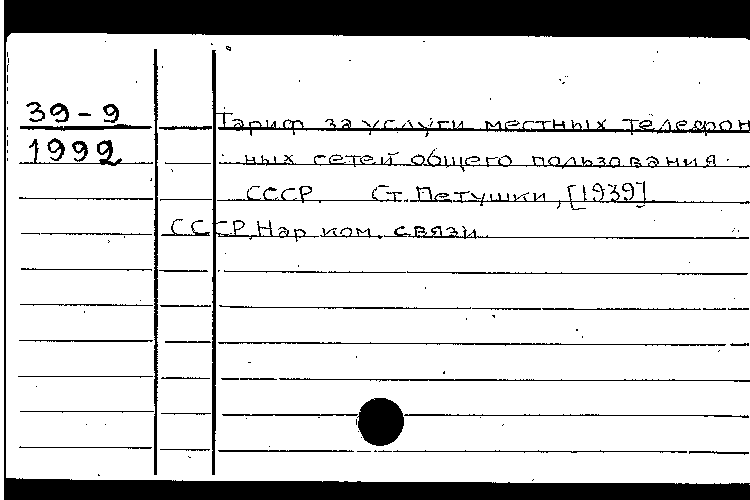 39-9
Тариф за услуги местных телефон
1992
ных сетей общего пользования
СССР. Ст. Петушки, [1939]
СССР. Нар. ком. связи